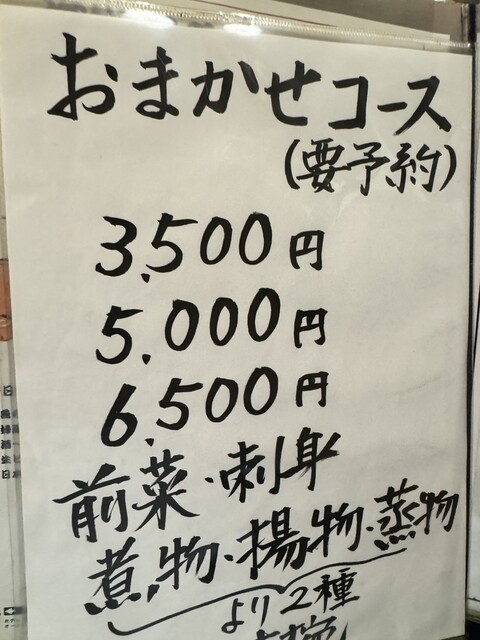 おまかせコース
(要予約)
3,500円
5,000円
6,500円
前菜・刺身
煮物・揚物・蒸物
より2種